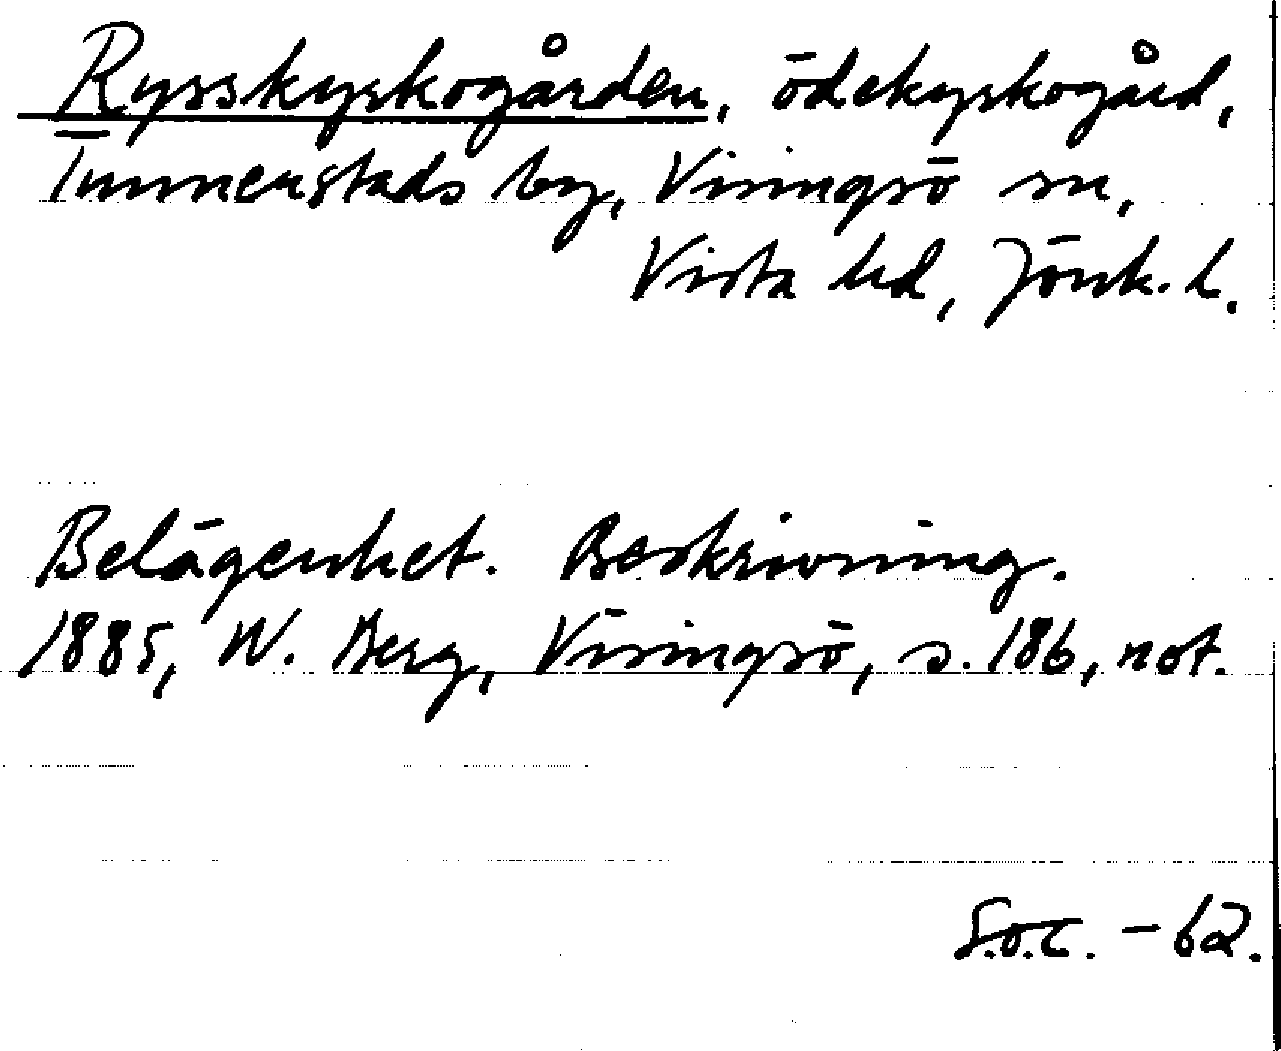 Rysskyrkogården, ödekyrkogård,
Tunnerstads by, Visingsö sn,
Vista hd, Jönk. l.
Belägenhet. Beskrivning.
1885, W. Berg, Visingsö, s. 186, not.
S.o.C. - 62.